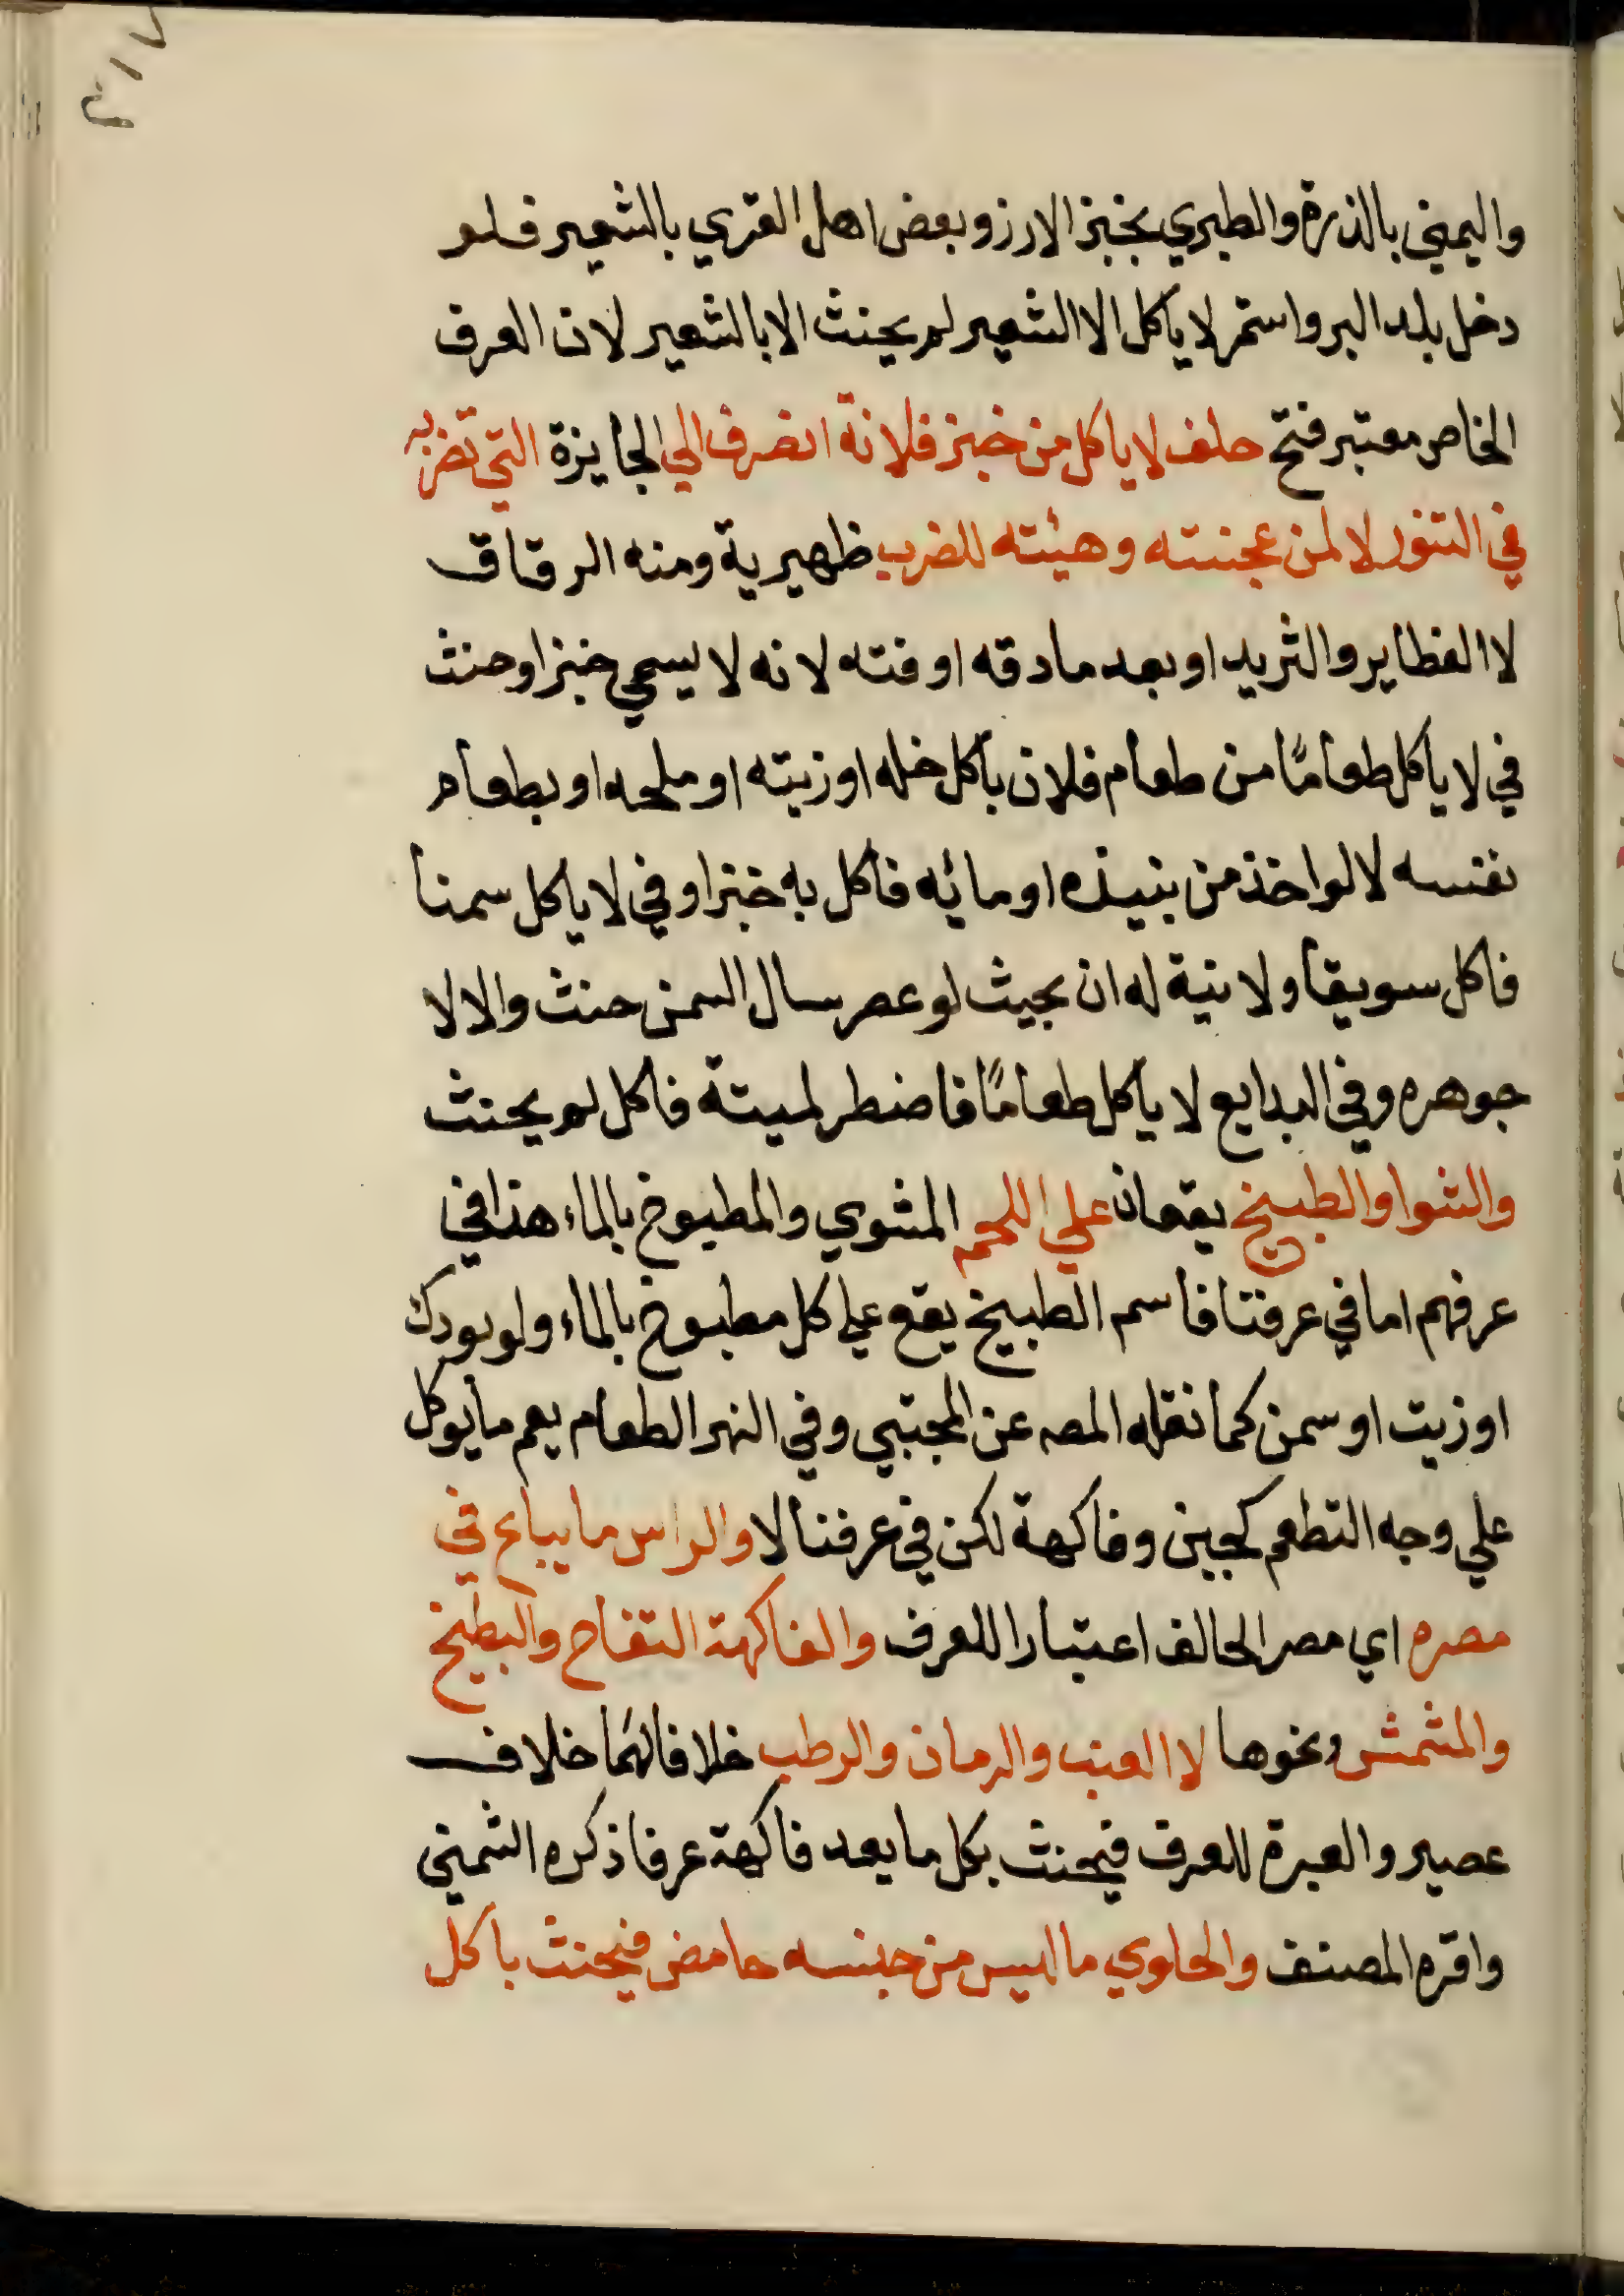 ٢١٧
واليمني بالذرة والطبري بخبز الارز وبعض اهل القري بالشعير فلو
دخل بلد البر واستمر لا ياكل الا الشعير لم يحنث الا بالشعير لان العرف
الخاص معتبر فتح حلف لا ياكل من خبز فلانة انصرف الي الجايزة التي تضربه
في التنور لا لمن عجنته وهيئته للضرب ظهيرية ومنه الرقاق
لا الفطاير والثريد او بعد ما دقه او فته لانه لا يسمي خبزا وحنث
في لا ياكل طعاما من طعام فلان باكل خله او زيته او ملحه او بطعام
نفسه لا لو اخذ من بنيذه او مائه فاكل به خبزا وفي لا ياكل سمنا
فاكل سويقا ولا نية له ان بحيث لو عصر سال السمن حنث والا لا
جوهره وفي البدايع لا ياكل طعاما فاضطر لميتة فاكل لم يحنث
والشوا والطبيخ يقعان علي اللحم المشوي والمطبوخ بالماء هذا في
عرفهم اما في عرفنا فاسم الطبيخ يقع علي كل مطبوخ بالماء ولو بودك
او زيت او سمن كما نقله المصہ عن المجتبي وفي النهر الطعام يعم ما يوكل
علي وجه التطعم كجبن وفاكهة لكن في عرفنا لا والراس ما يباع في
مصره اي مصر الحالف اعتبارا للعرف والفاكهة التفاح والبطيخ
والمشمش ونحوها لا العنب والرمان والرطب خلافا لهما خلاف
عصير والعبرة للعرف فيحنث بكل ما يعد فاكهة عرفا ذكره الشمني
واقره المصنف والحلوي ما ليس من جنسه حامض فيحنث باكل